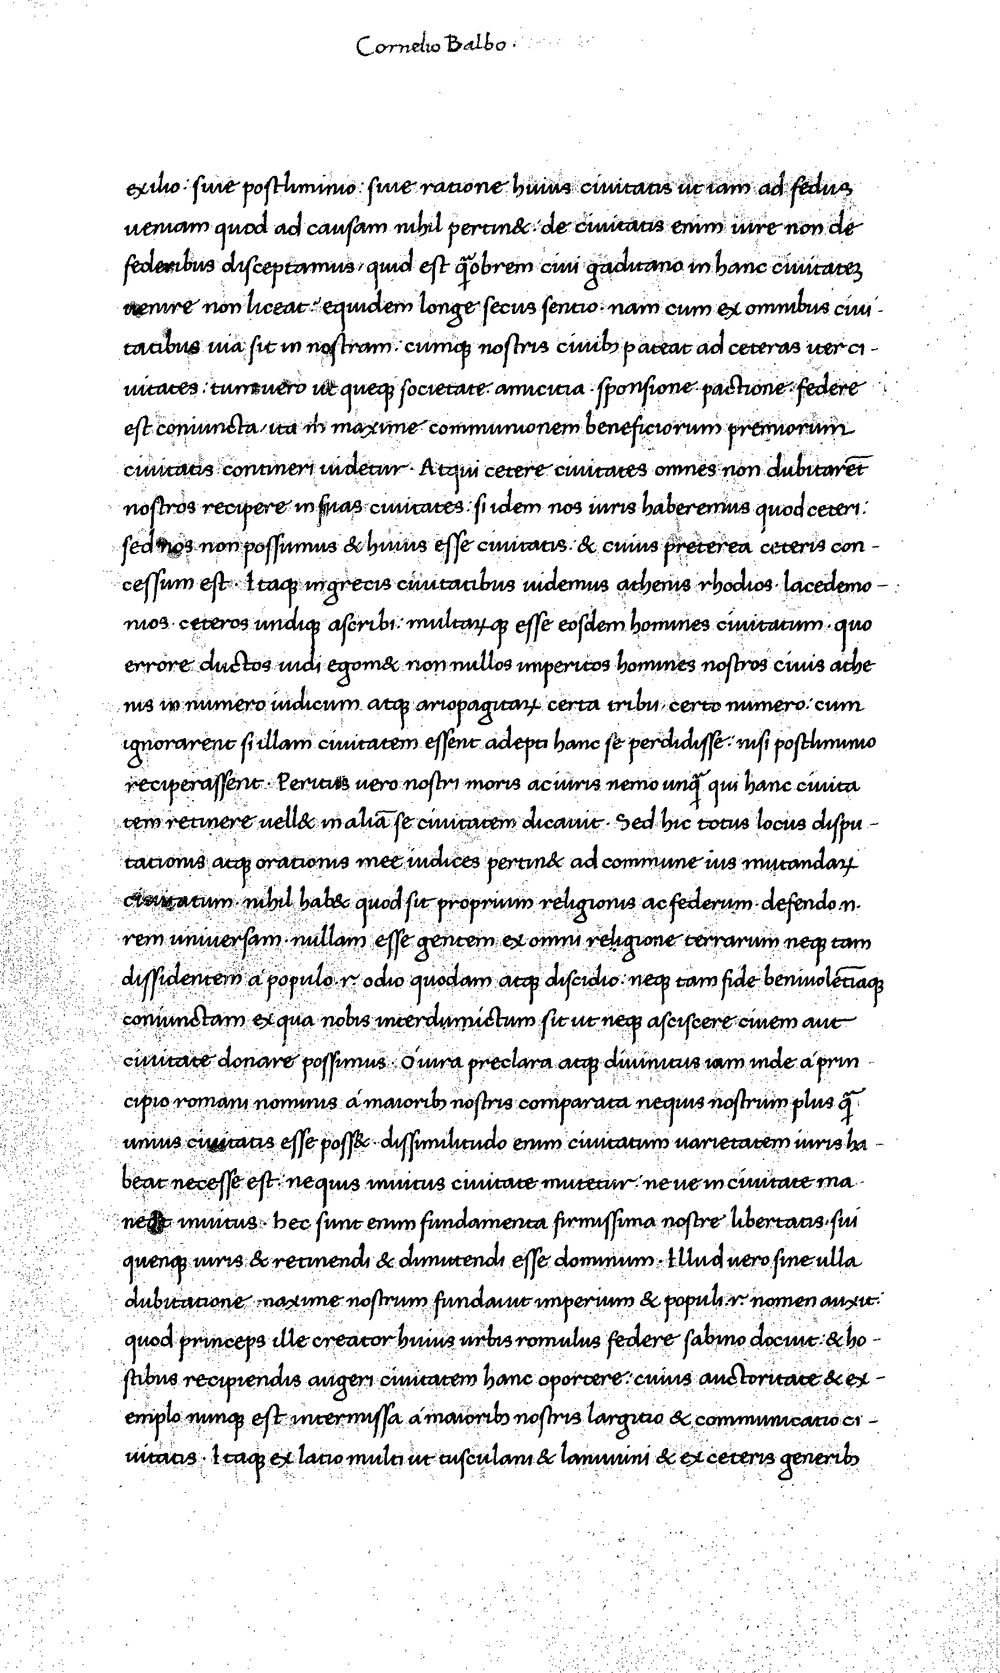 Cornelio Balbo.
exilio: siue postliminio: siue ratione huius ciuitatis ut iam ad fedus
ueniam quod ad causam nihil pertin&: de ciuitatis enim iure non de
federibus disceptamus, quid est q̄obrem ciui gaditano in hanc ciuitateȝ
uenire non liceat: equidem longe secus sentio. nam cum ex omnibus ciui-
tatibus uia sit in nostram: cumqȝ nostris ciuibȝ pateat ad ceteras iter ci-
uitates: tum uero ut quęqȝ societate amicitia sponsione pactione federe
est coniuncta, ita m̊ maxime communionem beneficiorum premiorum
ciuitatis contineri uidetur. Atqui cetere ciuitates omnes non dubitarēt
nostros recipere in suas ciuitates: si idem nos iuris haberemus quod ceteri:
sed nos non possumus & huius esse ciuitatis: & cuius preterea ceteris con-
cessum est. Itaqȝ in grecis ciuitatibus uidemus athenis rhodios lacedemo-
nios ceteros undiqȝ ascribi: multaꝝqȝ esse eosdem homines ciuitatum. quo
errore ductos uidi egom& non nullos imperitos homines nostros ciuis athe
nis in numero iudicum atqȝ ariopagitaꝝ certa tribu, certo numero: cum
ignorarent si illam ciuitatem essent adepti hanc se perdidisse: nisi postliminio
reciperassent. Peritus uero nostri moris ac iuris nemo unq̄ qui hanc ciuita
tem retinere uell& in aliā se ciuitatem dicauit. Sed hic totus locus dispu-
tationis atqȝ orationis mee iudices pertin& ad commune ius mutandaꝝ
ciuitatum. nihil hab& quod sit proprium religionis ac federum. defendo .n.
rem uniuersam. nullam esse gentem ex omni religione terrarum neqȝ tam
dissidentem á populo .r. odio quodam atqȝ discidio: neqȝ tam fide beniuolētiaqȝ
coniunctam ex qua nobis interdumictum sit ut neqȝ asciscere ciuem aut
ciuitate donare possimus. O iura preclara atqȝ diuinitus iam inde á prin
cipio romani nominis á maioribȝ nostris comparata ne quis nostrum plus q̄
unius ciuitatis esse poss&. dissimilitudo enim ciuitatum uarietatem iuris ha-
beat necesse est. ne quis inuitus ciuitate mutetur: ne ue in ciuitate ma
neat inuitus. hec sunt enim fundamenta firmissima nostre libertatis. sui
quenqȝ iuris & retinendi & dimitendi esse dominum. Illud uero sine ulla
dubitatione maxime nostrum fundauit imperium & populi .r. nomen auxit:
quod princeps ille creator huius urbis romulus federe sabino docuit: & ho-
stibus recipiendis augeri ciuitatem hanc oportere: cuius auctoritate & ex-
emplo nunqȝ est intermissa á maioribȝ nostris largitio & communicatio ci-
uitatis. Itaqȝ ex latio multi ut tusculani & lanuuini & ex ceteris generibȝ